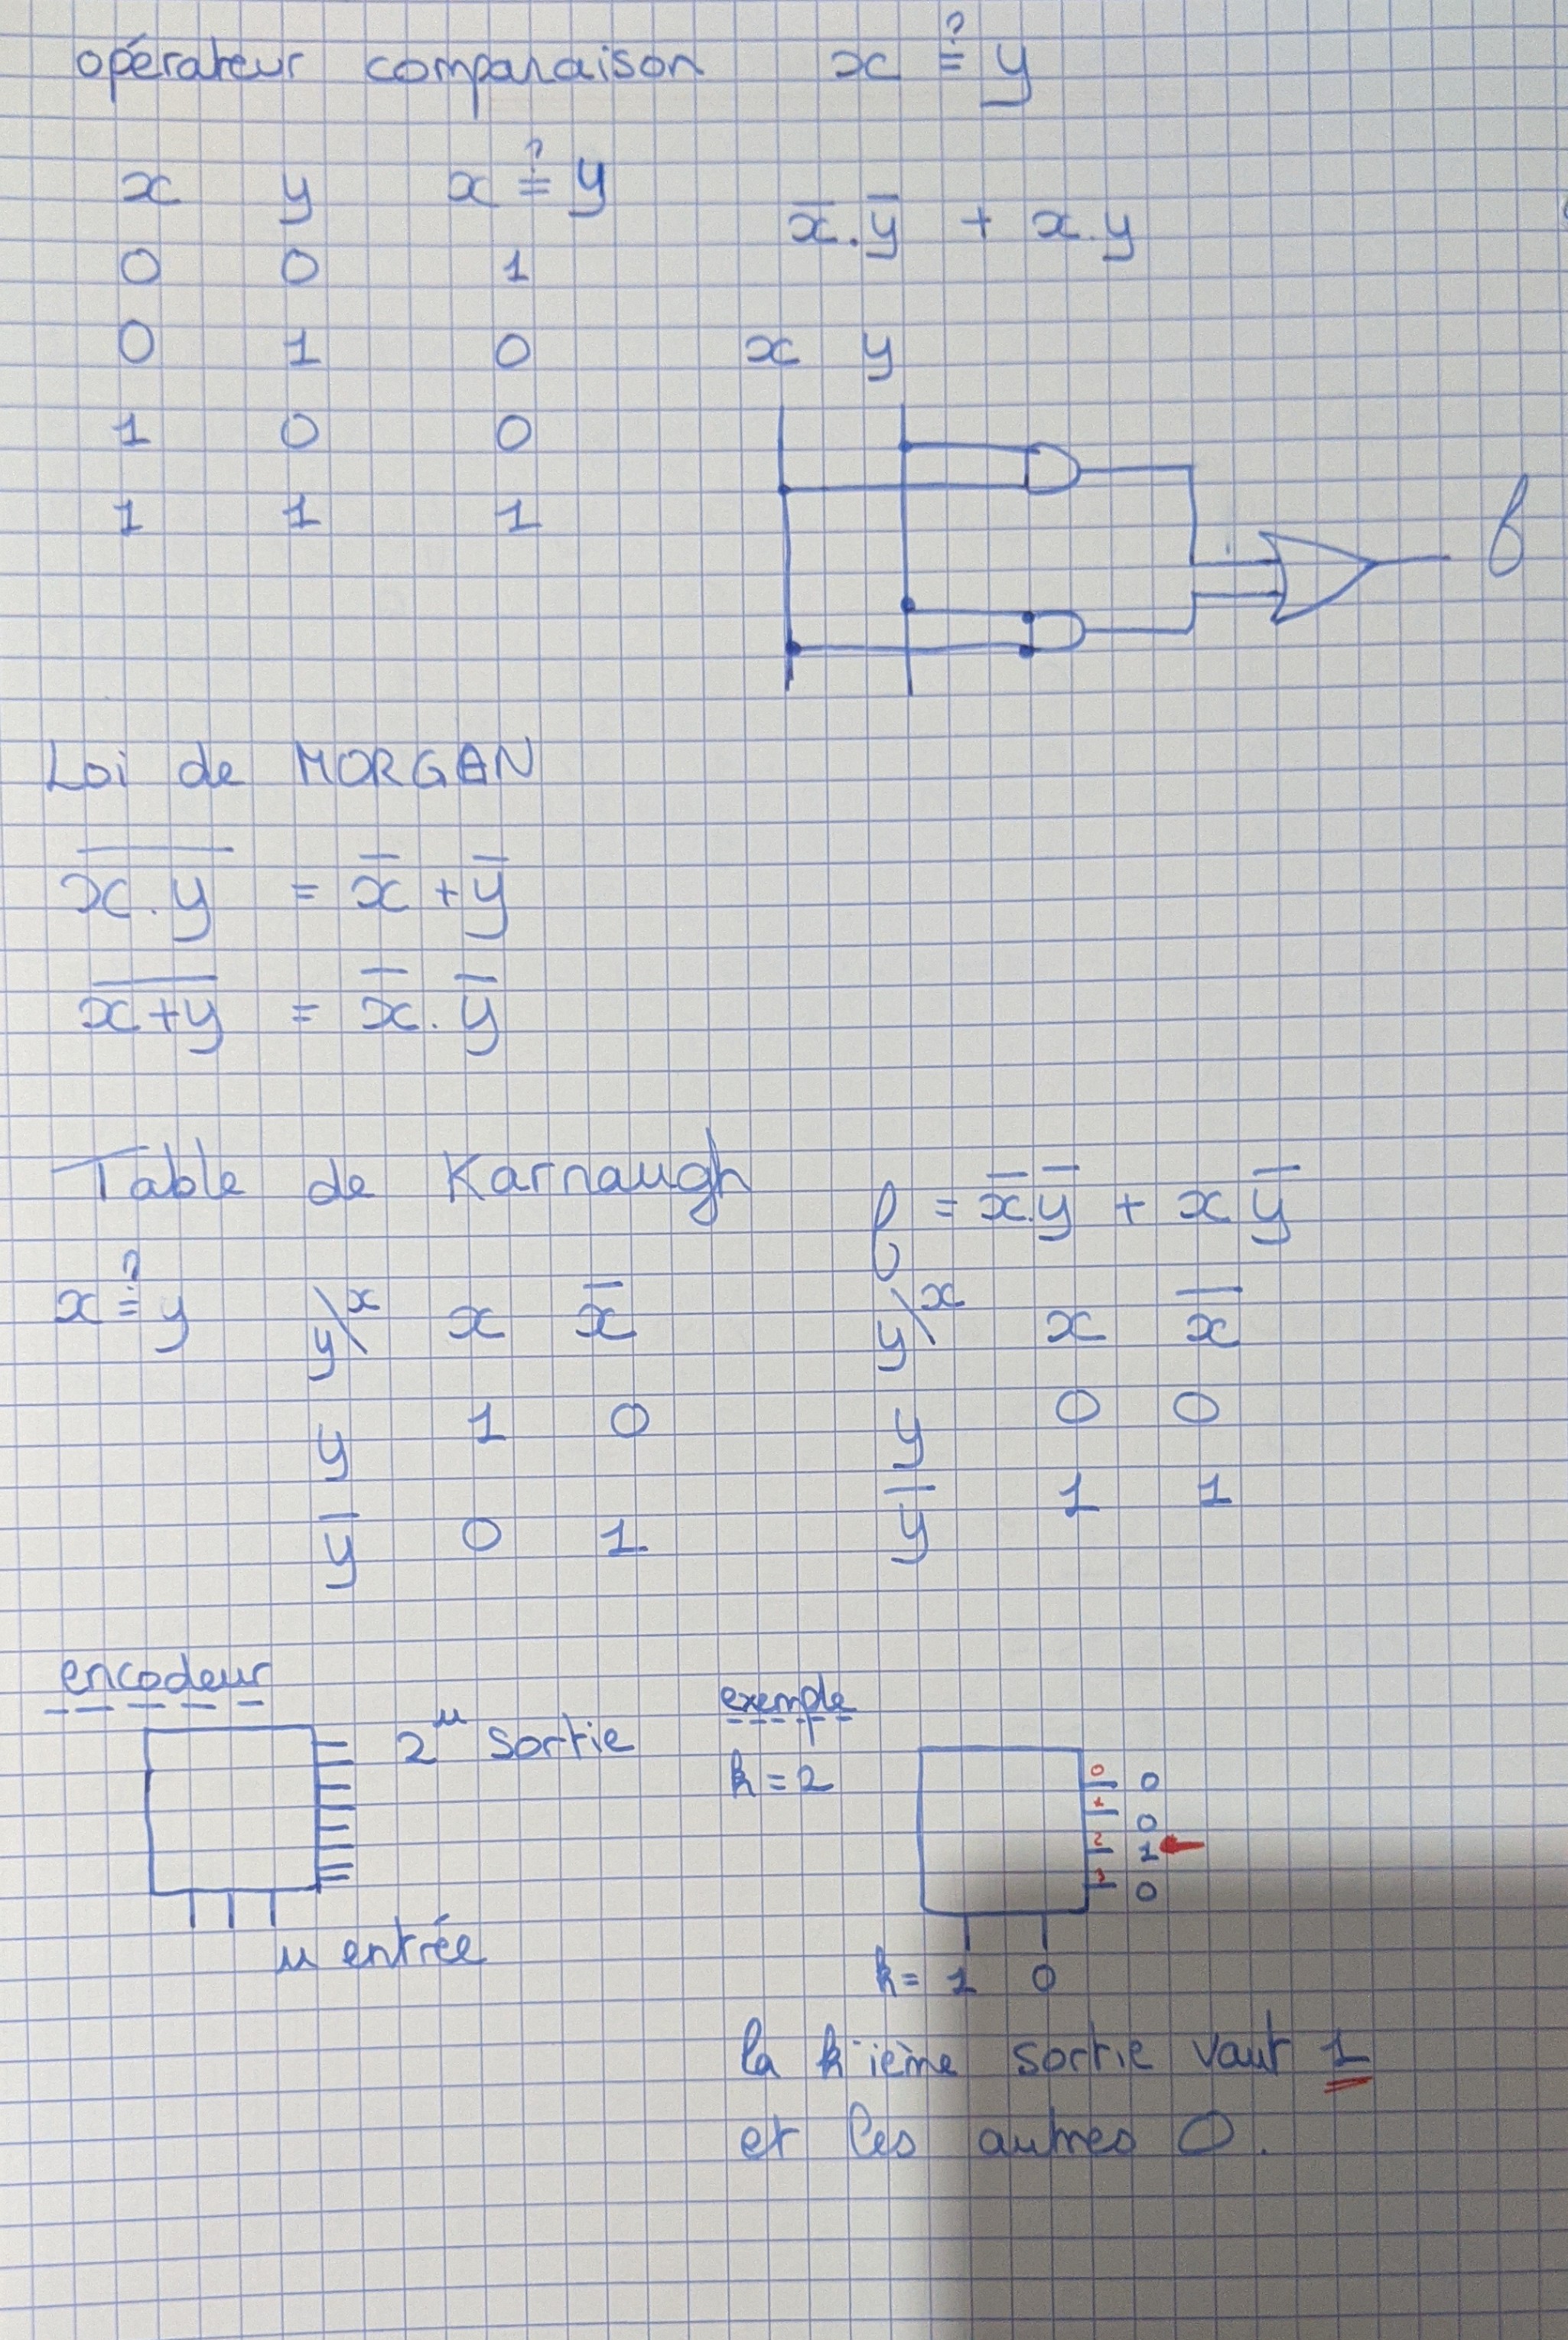 opérateur comparaison x ≟ y
x y x ≟ y
x̅.y̅ + x.y
0 0 1
0 1 0
1 0 0
1 1 1
x y
f
Loi de MORGAN
x̅.̅y̅ = x̅ + y̅
x̅+̅y̅ = x̅.y̅
Table de Karnaugh
f = x̅.y̅ + x y̅
x ≟ y
y\x x x̅
y 1 0
y̅ 0 1
y\x x x̅
y 0 0
y̅ 1 1
encodeur
2ⁿ sortie
n entrée
exemple
k = 2
0 0
1 0
2 1
3 0
k = 1 0
la k ième sortie vaut 1
et les autres 0.